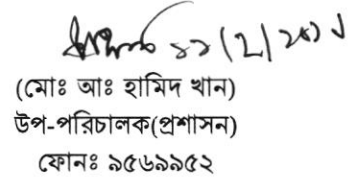 (মোঃ আঃ হামিদ খান)
উপ-পরিচালক(প্রশাসন)
ফোনঃ ৯৫৬৯৯৫২